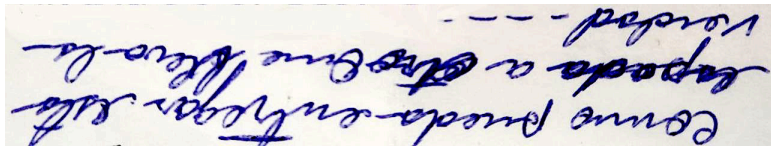 Como pueda entregar esta
espada a otro Que lleva la
verdad ----